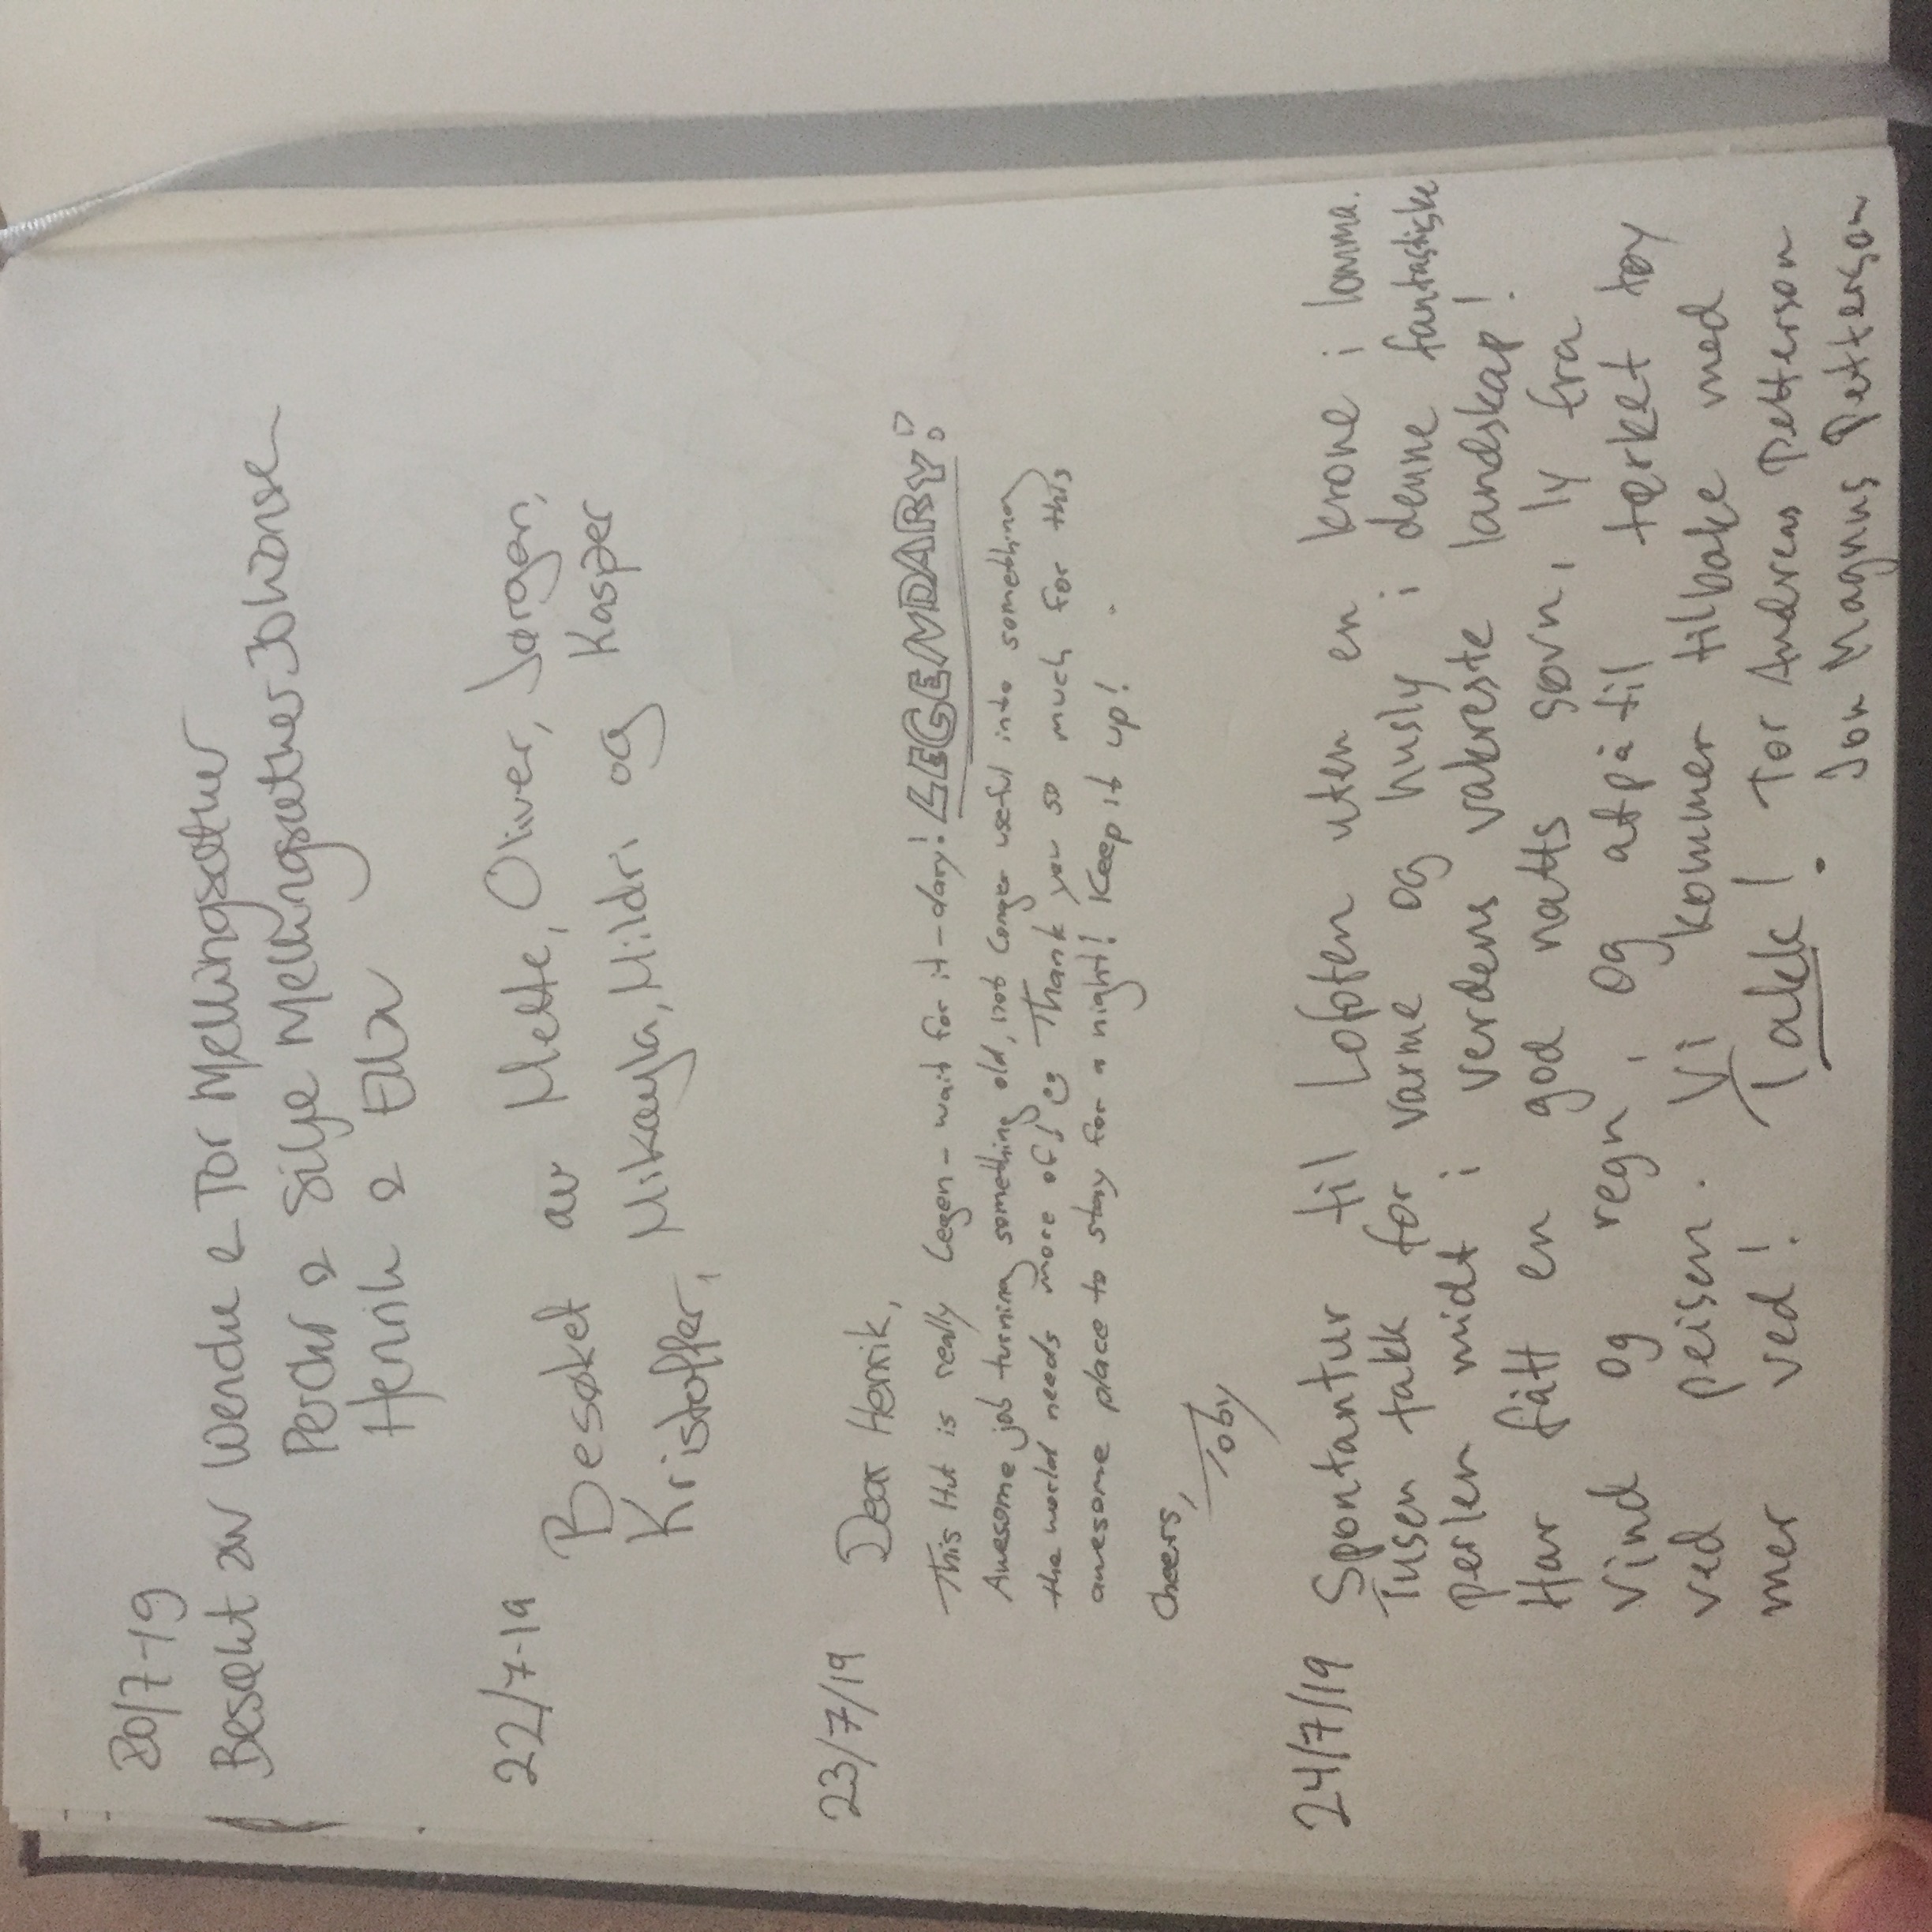 20/7-19
Besøkt av Wenche & Tor Mellingsæther
& Silje Mellingsæther Johanse
Henrik &
22/7-19
Besøket av Mette, Oliver, Jørgen,
Kristoffer, Mikayla, Mildri og Kasper
23/7/19
Dear Henrik,
This Hut is really Legen - wait for it - dary! LEGENDARY!
Awesome job turning something old, not longer useful into something
the world needs more of! Thank you so much for this
awesome place to stay for a night! Keep it up!
Cheers,
Toby
24/7/19 Spontantur til Lofoten uten en krone i lomma.
Tusen takk for varme og husly i denne fantastiske
perlen midt i verdens vakreste landskap!
Har fått en god natts søvn, ly fra
vind og regn, og atpåtil tørket tøy
ved peisen. Vi kommer tilbake med
mer ved! Takk! Tor Andreas Petterson
Jon Magnus Petterson